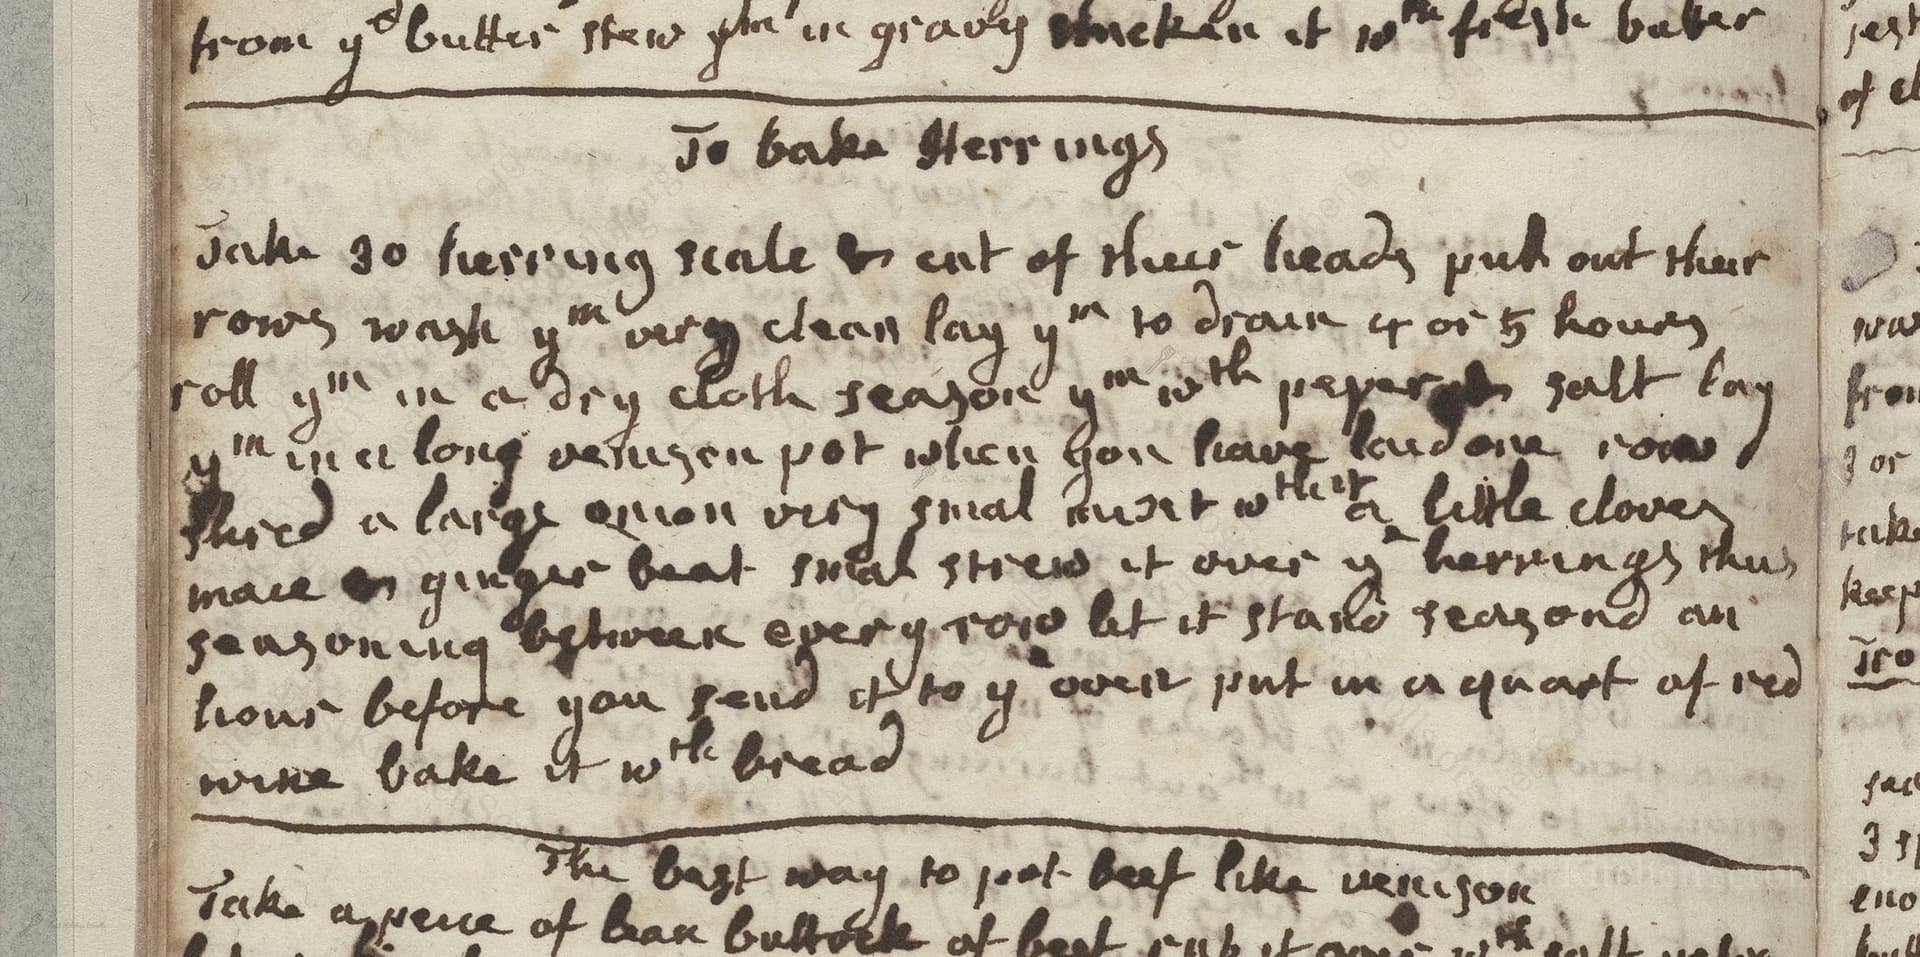 from yd butter stew ym in gravy thicken it wth fresh buter
To bake Herrings
Take 30 herring scale & cut of their heads pull out their
rows wash ym very clean lay ym to drain 4 or 5 hours
roll ym in a dry cloth season ym wth peper & salt lay
ym in a long venison pot when you have laid one row
shred a large onion very smal mixt wth a little cloves
mace & ginger beat smal strew it over ye herrings thus
seasoning between every row let it stand seasond an
hour before you send it to ye oven put in a quart of red
wine bake it wth bread
The best way to pot beef like venison
Take a peice of lean buttock of beef rub it over wth salt
of
3 or
take
keep
3